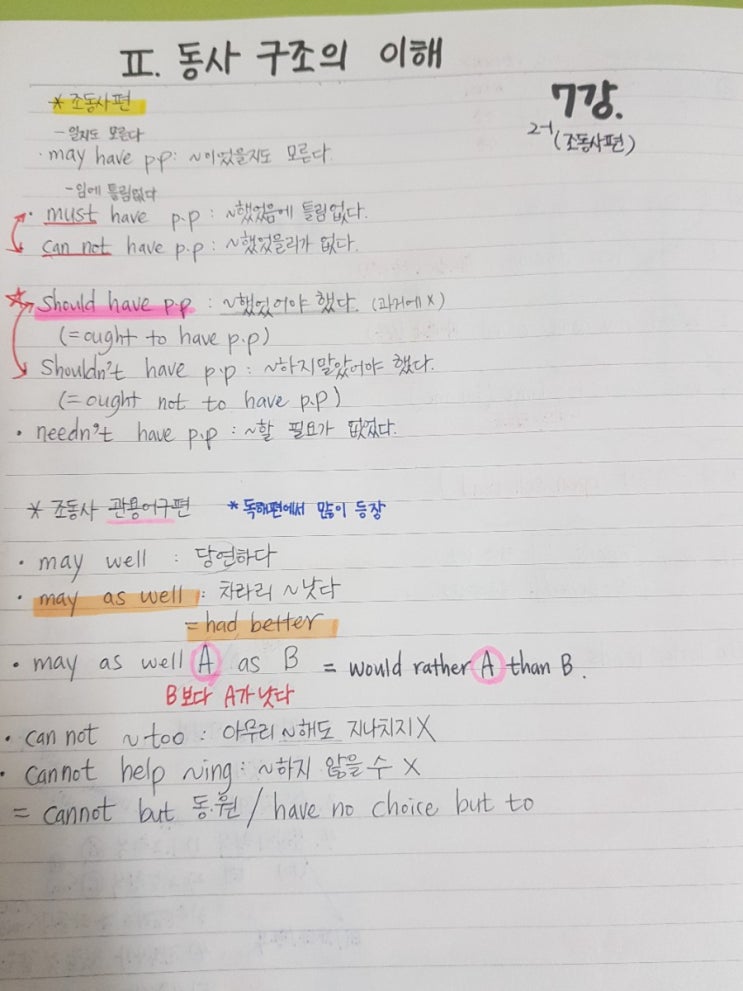 Ⅱ. 동사 구조의 이해
7강.
2-1 (조동사편)
* 조동사편
- 일지도 모른다
· may have pp: ~이었을지도 모른다.
- 임에 틀림없다
· must have p.p : ~했었음에 틀림없다.
can not have p.p : ~했었을리가 없다.
☆ should have p.p : ~했었어야 했다. (과거에 X)
(= ought to have p.p)
shouldn't have p.p : ~하지말았어야 했다.
(= ought not to have p.p)
· needn't have p.p : ~할 필요가 없었다.
* 조동사 관용어구편 * 독해편에서 많이 등장
· may well : 당연하다
· may as well : 차라리 ~낫다
= had better
· may as well A as B = would rather A than B.
B보다 A가 낫다
· can not ~too : 아무리 ~해도 지나치지 X
· cannot help ~ing : ~하지 않을 수 X
= cannot but 동.원 / have no choice but to